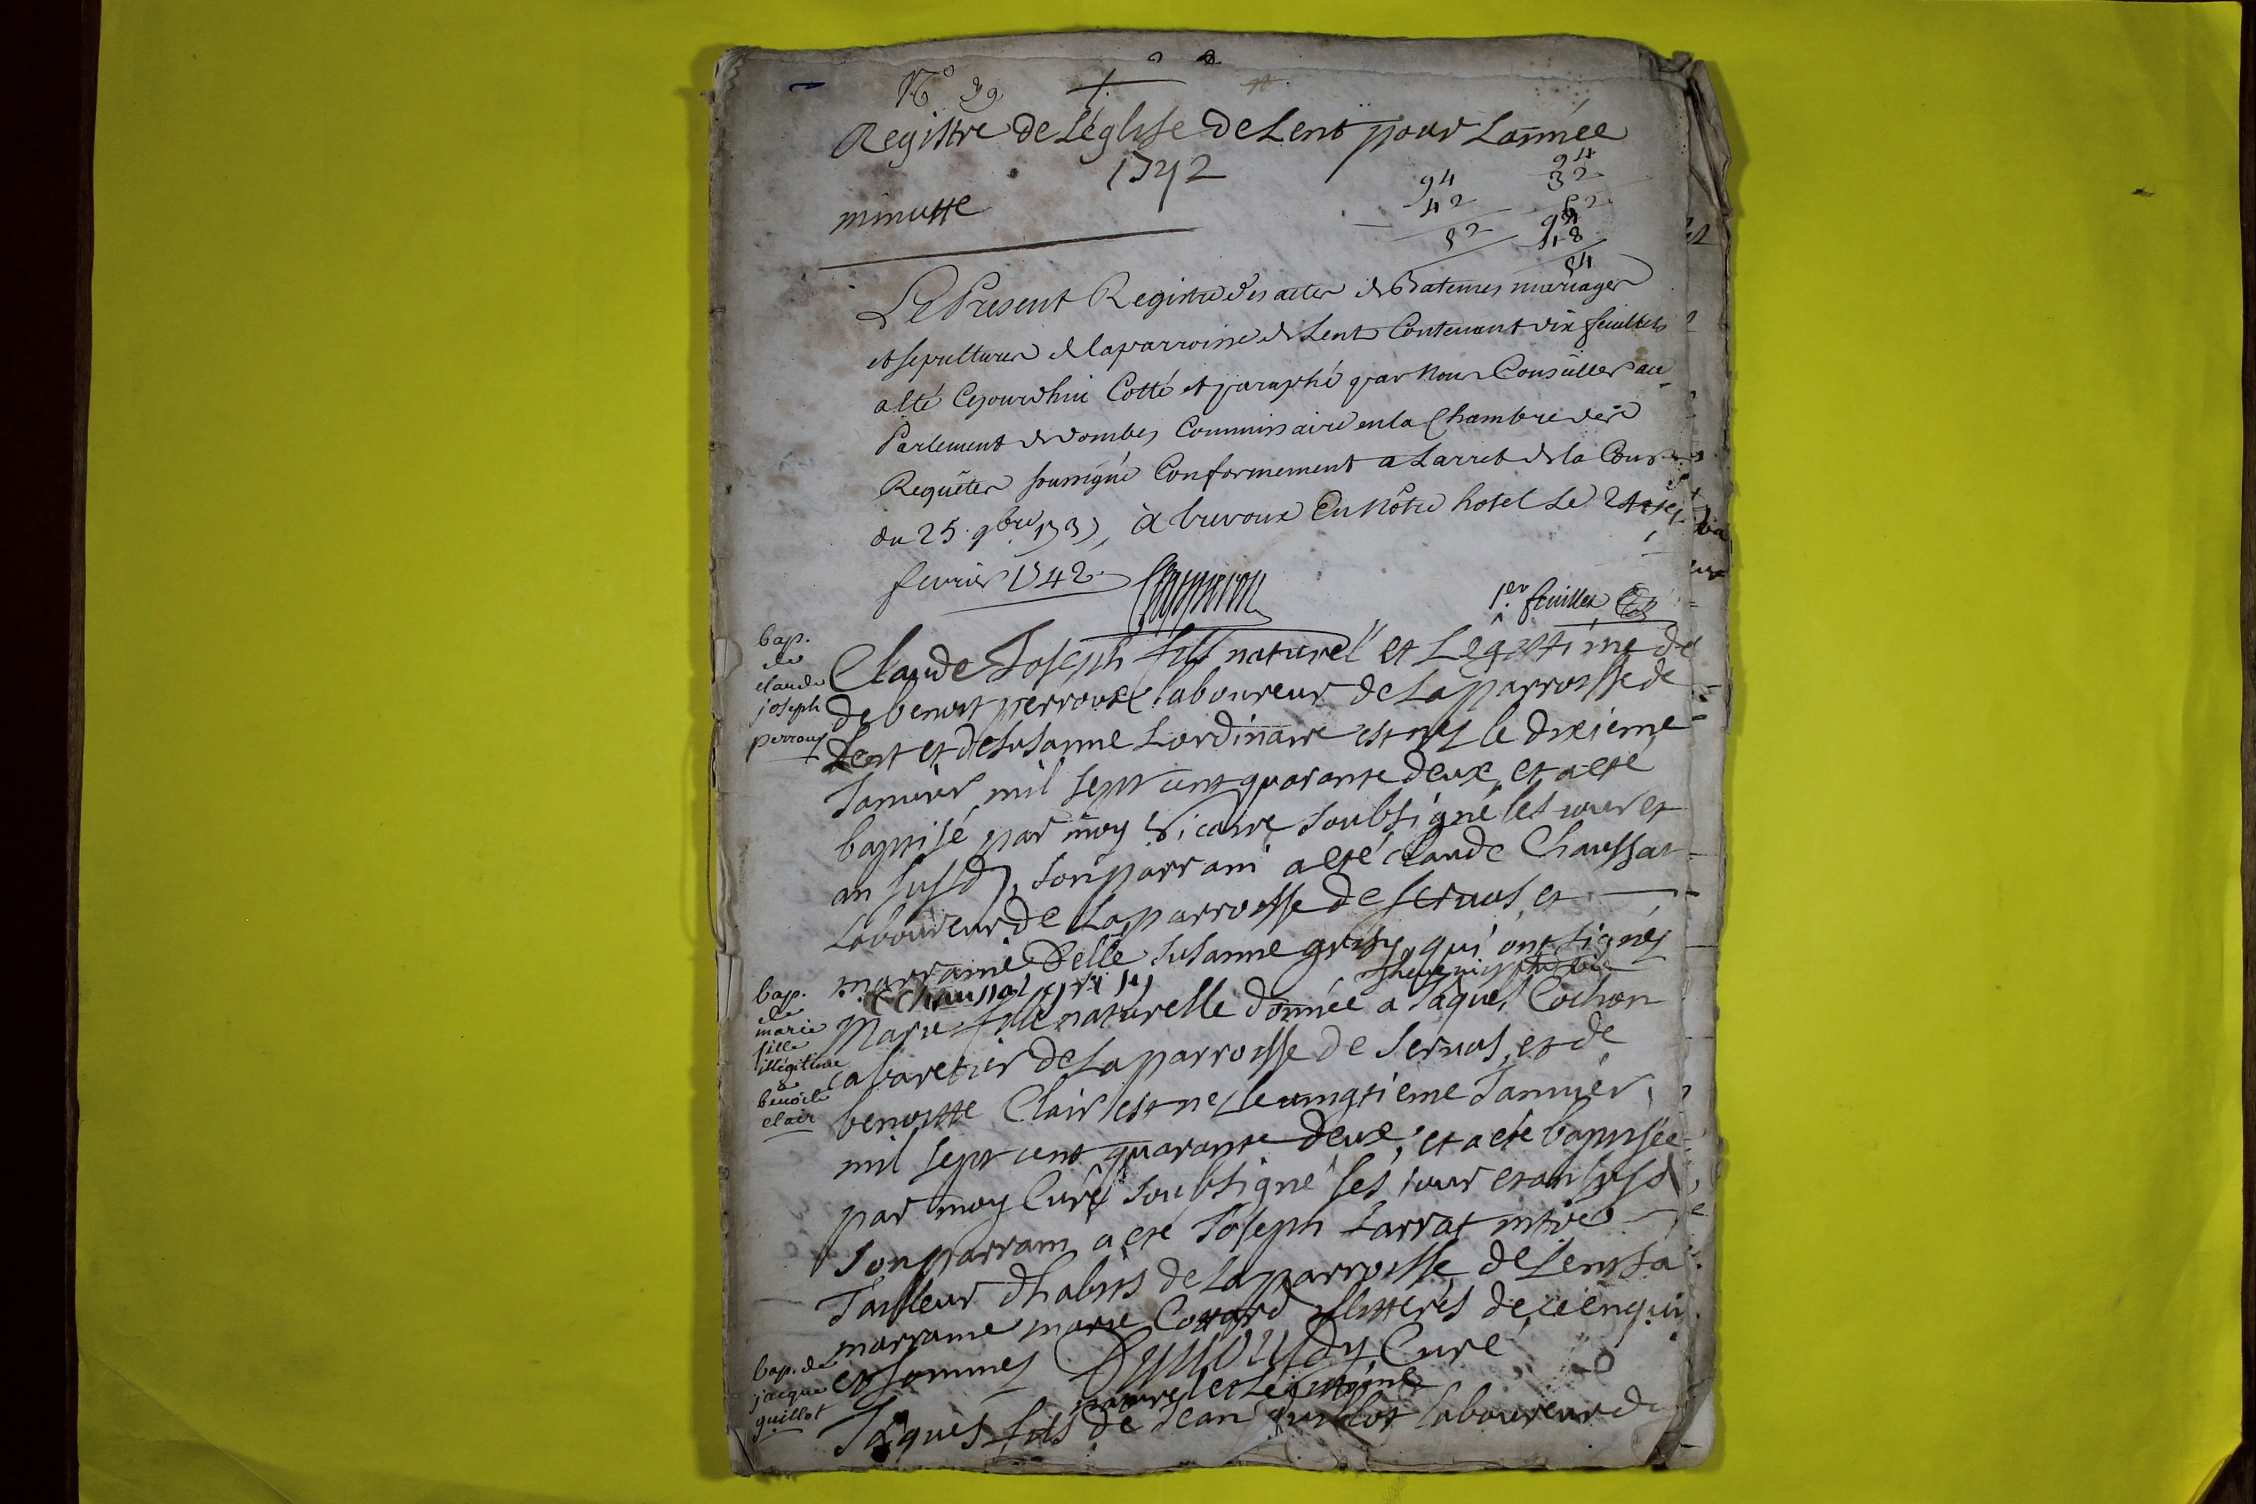 N° 39
Registre de L'eglise de Lent pour Lannée
1742
minutte
94
42
52
94
32
62
94
18
Le Present Registre des actes de Batemes mariages
et sepultures de la parroisse de Lent Contenant dix feuillets
a été Cejourdhui Cotté et paraphé par Nous Conseiller au
Parlement de dombes Commissaire en la Chambre des
Requêtes soussigné Conformement a Larrest de la Cour
du 25 9bre à trevoux En Nôtre hotel Le
fevrier 1742
1er feuillet
bap.
de
claude
joseph
perroux
Claude Joseph fils naturel et Legitime de
de benoit perroux laboureur de La parroisse de
Lent et de Susanne Lordinaire est nez le dixieme
Janvier mil sept cent quarante deux, et a eté
baptisé par moy Vicaire Soubsigné les iour et
an susd, Son parrain a eté Claude Chaussat
Laboureur de La parroisse de servas, et
marraine Delle Susanne qui ont signéz
C Chaussat
bap.
de
marie
fille
illégitime
de
benoite
clair
Marie fille naturelle donnée a Jâques Cochon
Cabaretier de La parroisse de Servas, et de
benoitte Clair est née le vingtieme Janvier
mil sept cent quarante deux, et a eté baptisée
par moy Curé Soubsigné les iour et an susd
Son parrain a eté Joseph Larrat mtre
Tailleur d'habits de La parroisse de Lent Sa
marraine marie Cottard illitterés de ce enquis
et sommes Curé
bap. de
jacque
guillot
naturel et Legitime
Jâques fils de Jean guillot laboureur de